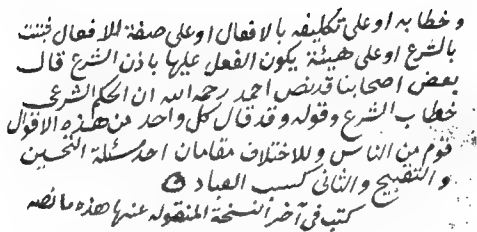 وخطابه او على تكليفه بالافعال او على صفة للافعال فتثبت
بالشرع او على هيئة يكون الفعل عليها باذن الشرع قال
بعض اصحابنا قد نص احمد رحمه الله ان الحكم الشرعي
خطاب الشرع وقوله وقد قال كل واحد من هذه الاقوال
قوم من الناس وللاختلاف مقامان احد مسئلة التحسين
والتقبيح والثاني كسب العباد
كتب في آخر النسخة المنقوله عنها هذه ما نصه